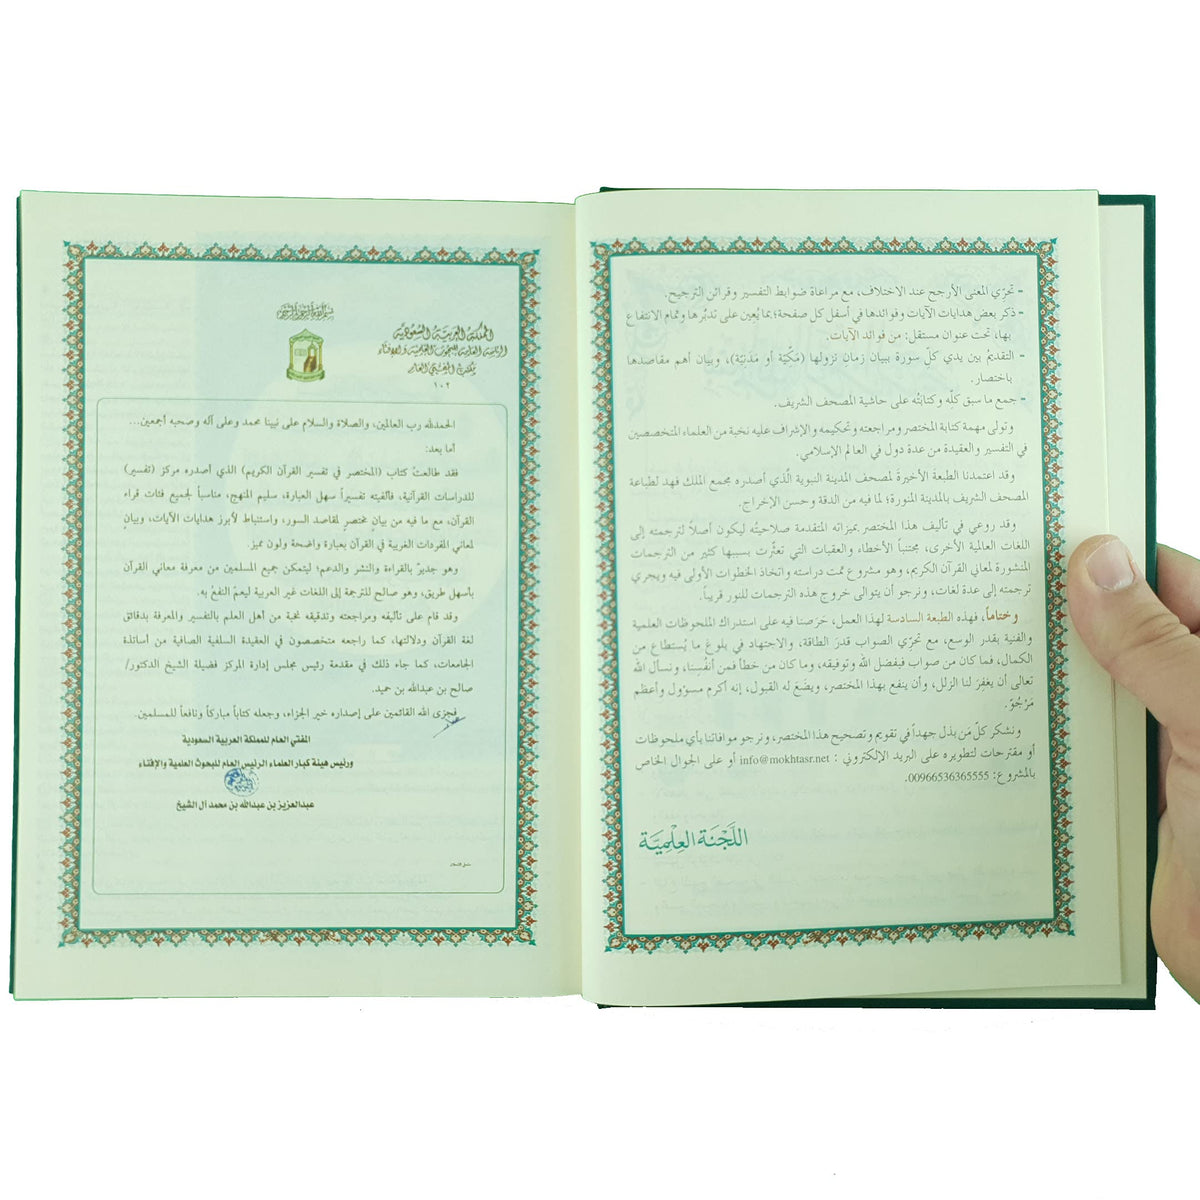 - تحرّي المعنى الأرجح عند الاختلاف، مع مراعاة ضوابط التفسير وقرائن الترجيح.
- ذكر بعض هدايات الآيات وفوائدها في أسفل كل صفحة؛ بما يُعِين على تدبُّرها وتمام الانتفاع
بها، تحت عنوان مستقل: من فوائد الآيات.
- التقديمُ بين يدي كلِّ سورة ببيان زمانِ نزولها (مَكِّيَّة أو مَدَنِيَّة)، وبيان أهم مقاصدها
باختصار.
- جمع ما سبق كلِّه وكتابتُه على حاشية المصحف الشريف.
وتولى مهمة كتابة المختصر ومراجعته وتحكيمه والإشراف عليه نخبة من العلماء المتخصصين
في التفسير والعقيدة من عدة دول في العالم الإسلامي.
وقد اعتمدنا الطبعةَ الأخيرةَ لمصحف المدينة النبوية الَّذي أصدره مجمع الملك فهد لطباعة
المصحف الشريف بالمدينة المنورة؛ لما فيه من الدقة وحسن الإخراج.
وقد روعي في تأليف هذا المختصر بميزاته المتقدمة صلاحيتُه ليكون أصلاً لترجمته إلى
اللغات العالمية الأخرى، مجتنباً الأخطاء والعقبات التي تعثّرت بسببها كثير من الترجمات
المنشورة لمعاني القرآن الكريم، وهو مشروع تمت دراسته واتخاذ الخطوات الأولى فيه ويجري
ترجمته إلى عدة لغات، ونرجو أن يتوالى خروج هذه الترجمات للنور قريباً.
وختاماً، فهذه الطبعة السادسة لهذا العمل، حَرَصنا فيه على استدراك الملحوظات العلمية
والفنية بقدر الوسع، مع تحرّي الصواب قدرَ الطاقة، والاجتهاد في بلوغ ما يُستطاع من
الكمال، فما كان من صواب فبفضل الله وتوفيقه، وما كان من خطأ فمن أنفُسِنا، ونسأل الله
تعالى أن يغفِرَ لنا الزلل، وأن ينفع بهذا المختصر، ويضَعَ له القبول، إنه أكرم مسؤول وأعظم
مَرْجُوّ.
ونشكر كلّ مَن بذل جهداً في تقويم وتصحيح هذا المختصر، ونرجو موافاتنا بأي ملحوظات
أو مقترحات لتطويره على البريد الإلكتروني : info@mokhtasr.net أو على الجوال الخاص
بالمشروع: 00966536365555.
اللَّجْنَة العِلْمِيَّة
بسم الله الرحمن الرحيم
المملكة العربية السعودية
الرئاسة العامة للبحوث العلمية والإفتاء
مكتب المفتي العام
١٠٢
الحمدلله رب العالمين، والصلاة والسلام على نبينا محمد وعلى آله وصحبه أجمعين...
أما بعد:
فقد طالعتُ كتاب (المختصر في تفسير القرآن الكريم) الذي أصدره مركز (تفسير)
للدراسات القرآنية، فألفيته تفسيراً سهل العبارة، سليم المنهج، مناسباً لجميع فئات قراء
القرآن، مع ما فيه من بيانٍ مختصرٍ لمقاصد السور، واستنباط لأبرز هدايات الآيات، وبيان
لمعاني المفردات الغريبة في القرآن بعبارة واضحة ولون مميز.
وهو جديرٌ بالقراءة والنشر والدعم؛ ليتمكن جميع المسلمين من معرفة معاني القرآن
بأسهل طريق، وهو صالح للترجمة إلى اللغات غير العربية ليعمَّ النفعُ به.
وقد قام على تأليفه ومراجعته وتدقيقه نخبة من أهل العلم بالتفسير والمعرفة بدقائق
لغة القرآن ودلالتها، كما راجعه متخصصون في العقيدة السلفية الصافية من أساتذة
الجامعات، كما جاء ذلك في مقدمة رئيس مجلس إدارة المركز فضيلة الشيخ الدكتور/
صالح بن عبدالله بن حميد.
فجزى الله القائمين على إصداره خير الجزاء، وجعله كتاباً مباركاً ونافعاً للمسلمين.
المفتي العام للمملكة العربية السعودية
ورئيس هيئة كبار العلماء الرئيس العام للبحوث العلمية والإفتاء
عبدالعزيز بن عبدالله بن محمد آل الشيخ